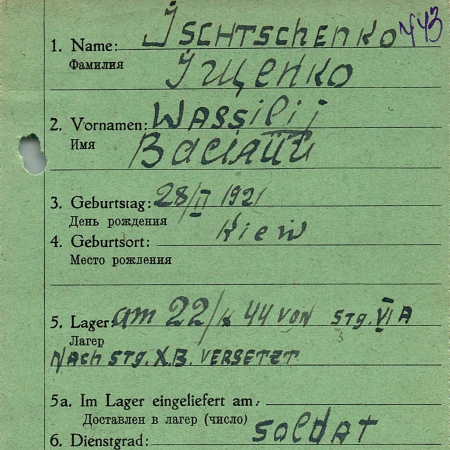 1. Name: Ischtschenko
Фамилия Ищенко
2. Vornamen: Wassilij
Имя Василий
3. Geburtstag: 28/II 1921
День рождения
4. Geburtsort: Kiew
Место рождения
5. Lager: am 22/ 44 von Stg. VI A
Лагер
nach Stg. X.B. versetzt
5a. Im Lager eingeliefert am:
Доставлен в лагер (число)
6. Dienstgrad: Soldat